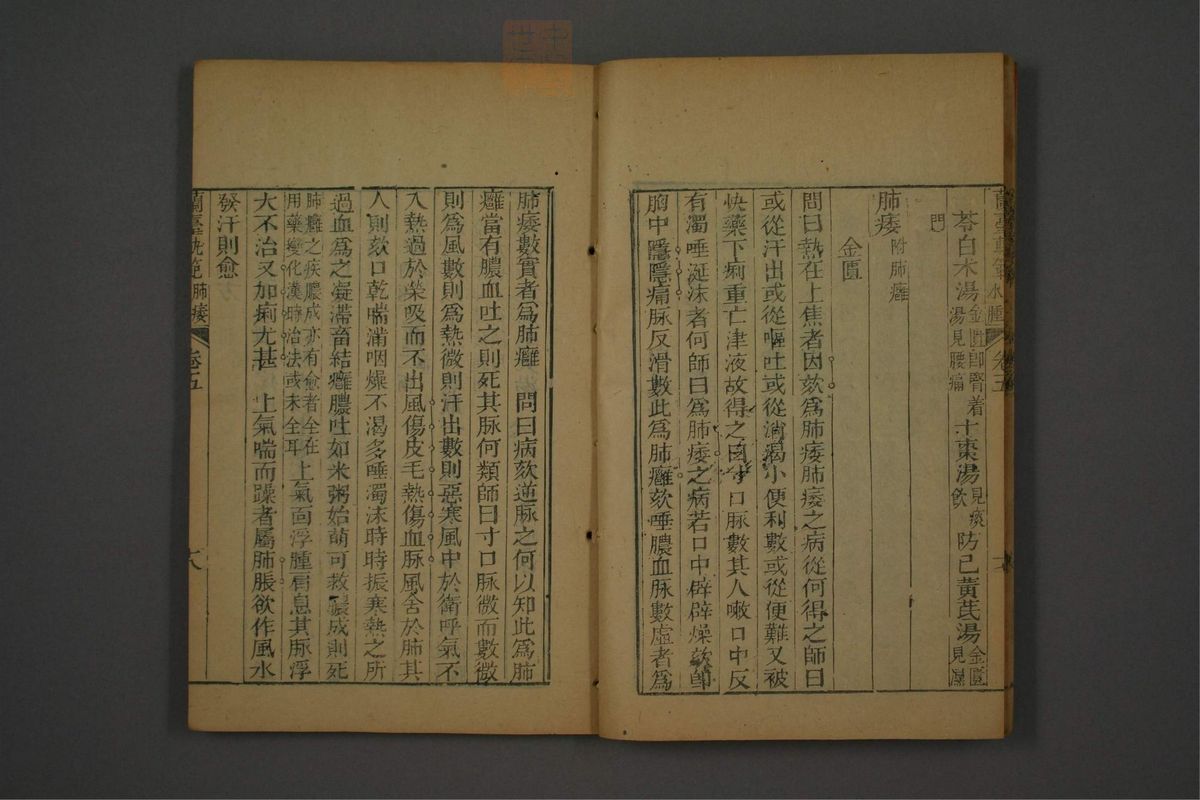 蘭臺軌範 水腫 卷五
苓白朮湯 金匱卽腎着湯見腰痛 十棗湯 見痰飲 防己黃芪湯 金匱見濕門
肺痿 附肺癰
金匱
問曰熱在上焦者因欬爲肺痿肺痿之病從何得之師曰
或從汗出或從嘔吐或從消渴小便利數或從便難又被
快藥下痢重亡津液故得之曰寸口脈數其人嗽口中反
有濁唾涎沫者何師曰爲肺痿之病若口中辟辟燥欬卽
胸中隱隱痛脈反滑數此爲肺癰欬唾膿血脈數虛者爲
肺痿數實者爲肺癰 問曰病欬逆脈之何以知此爲肺
癰當有膿血吐之則死其脈何類師曰寸口脈微而數微
則爲風數則爲熱微則汗出數則惡寒風中於衛呼氣不
入熱過於榮吸而不出風傷皮毛熱傷血脈風舍於肺其
人則欬口乾喘滿咽燥不渴多唾濁沫時時振寒熱之所
過血爲之凝滯畜結癰膿吐如米粥始萌可救膿成則死
肺癰之疾膿成亦有愈者全在用藥變化漢時治法或未全耳 上氣面浮腫肩息其脈浮
大不治又加痢尤甚 上氣喘而躁者屬肺脹欲作風水
發汗則愈
蘭臺軌範 肺痿 卷五 六